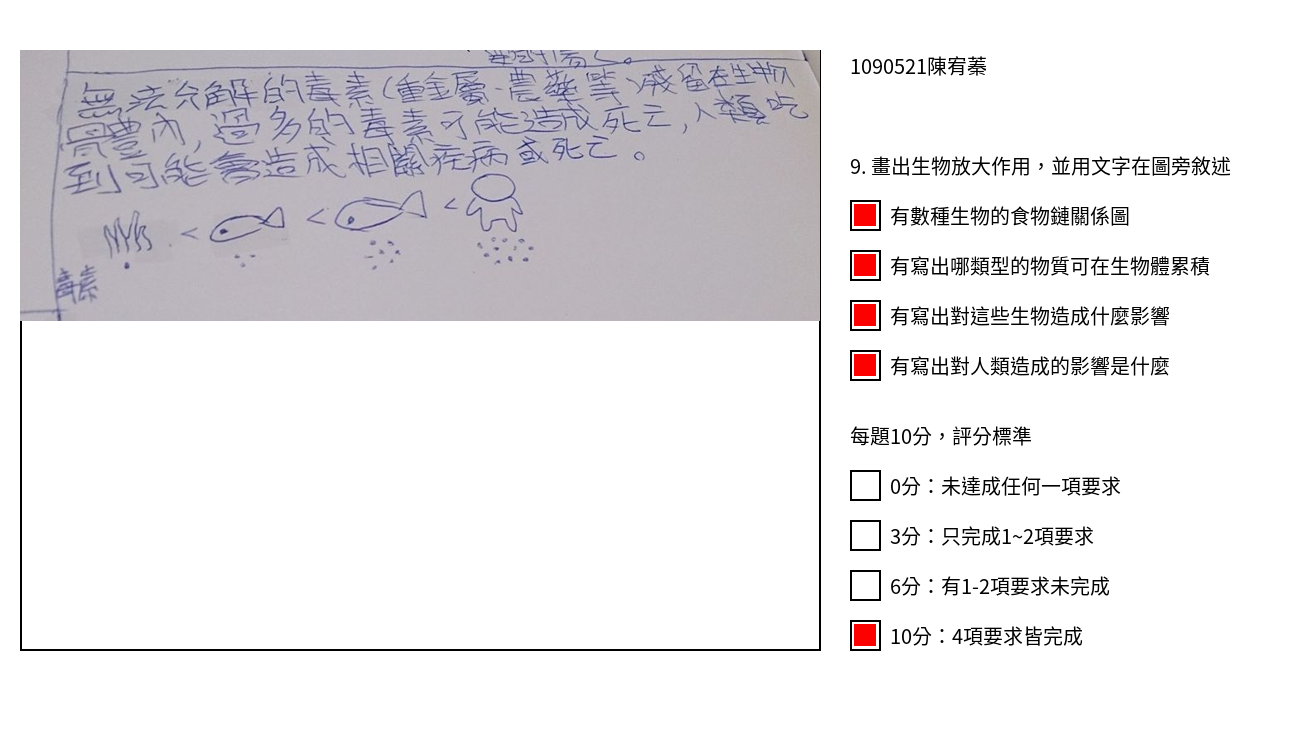 無法分解的毒素(重金屬、農藥等)殘留在生物
體內,過多的毒素可能造成死亡,人類吃
到可能會造成相關疾病或死亡。
< < <
毒素
1090521陳宥蓁
9. 畫出生物放大作用，並用文字在圖旁敘述
有數種生物的食物鏈關係圖
有寫出哪類型的物質可在生物體累積
有寫出對這些生物造成什麼影響
有寫出對人類造成的影響是什麼
每題10分，評分標準
0分：未達成任何一項要求
3分：只完成1~2項要求
6分：有1-2項要求未完成
10分：4項要求皆完成